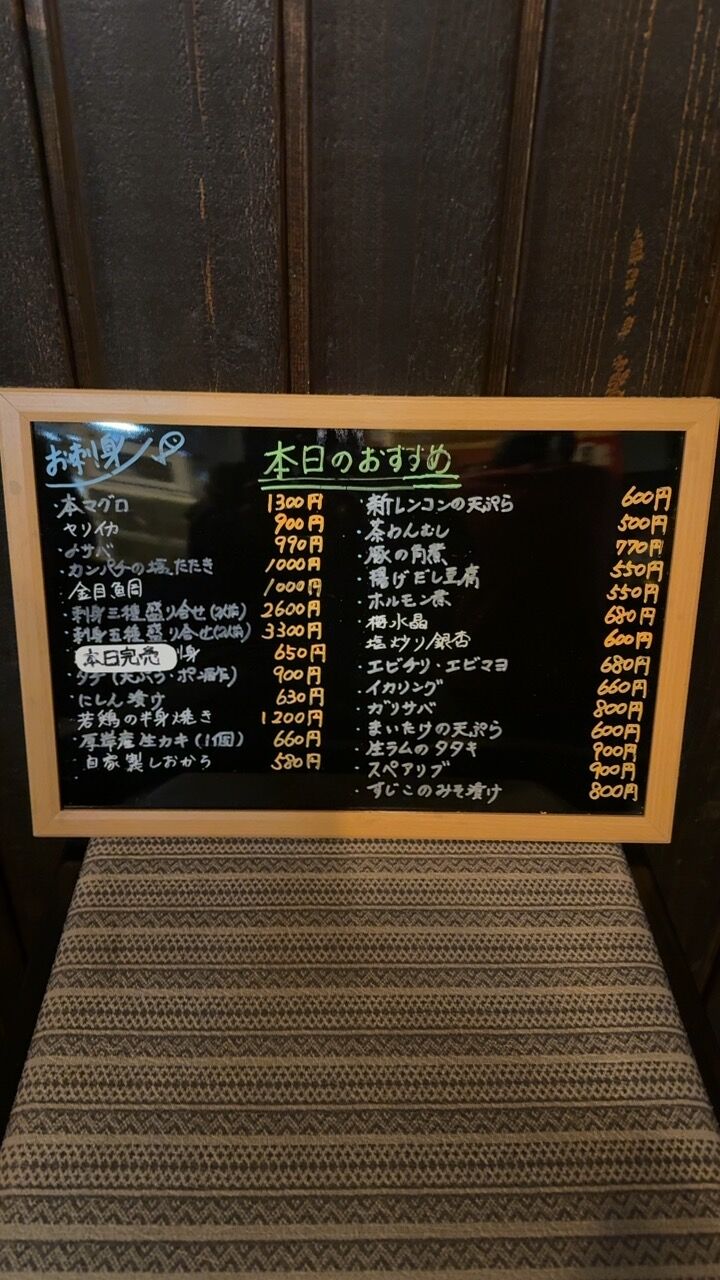 お刺身
本日のおすすめ
・本マグロ 1300円
ヤリイカ 900円
・〆サバ 990円
・カンパチの塩たたき 1000円
金目鯛 1000円
・刺身三種盛り合せ(2人前) 2600円
・刺身五種盛り合せ(2人前) 3300円
本日完売 刺身 650円
・タチ(天ぷら・ポン酢) 900円
・にしん漬け 630円
若鶏の半身焼き 1200円
・厚岸産生カキ(1個) 660円
・自家製しおから 580円
・新レンコンの天ぷら 600円
・茶わんむし 500円
・豚の角煮 770円
・揚げだし豆腐 550円
・ホルモン煮 550円
・梅水晶 680円
塩炒り銀杏 600円
・エビチリ・エビマヨ 680円
・イカリング 660円
・ガリサバ 800円
・まいたけの天ぷら 600円
・生ラムのタタキ 900円
・スペアリブ 900円
・すじこのみそ漬け 800円